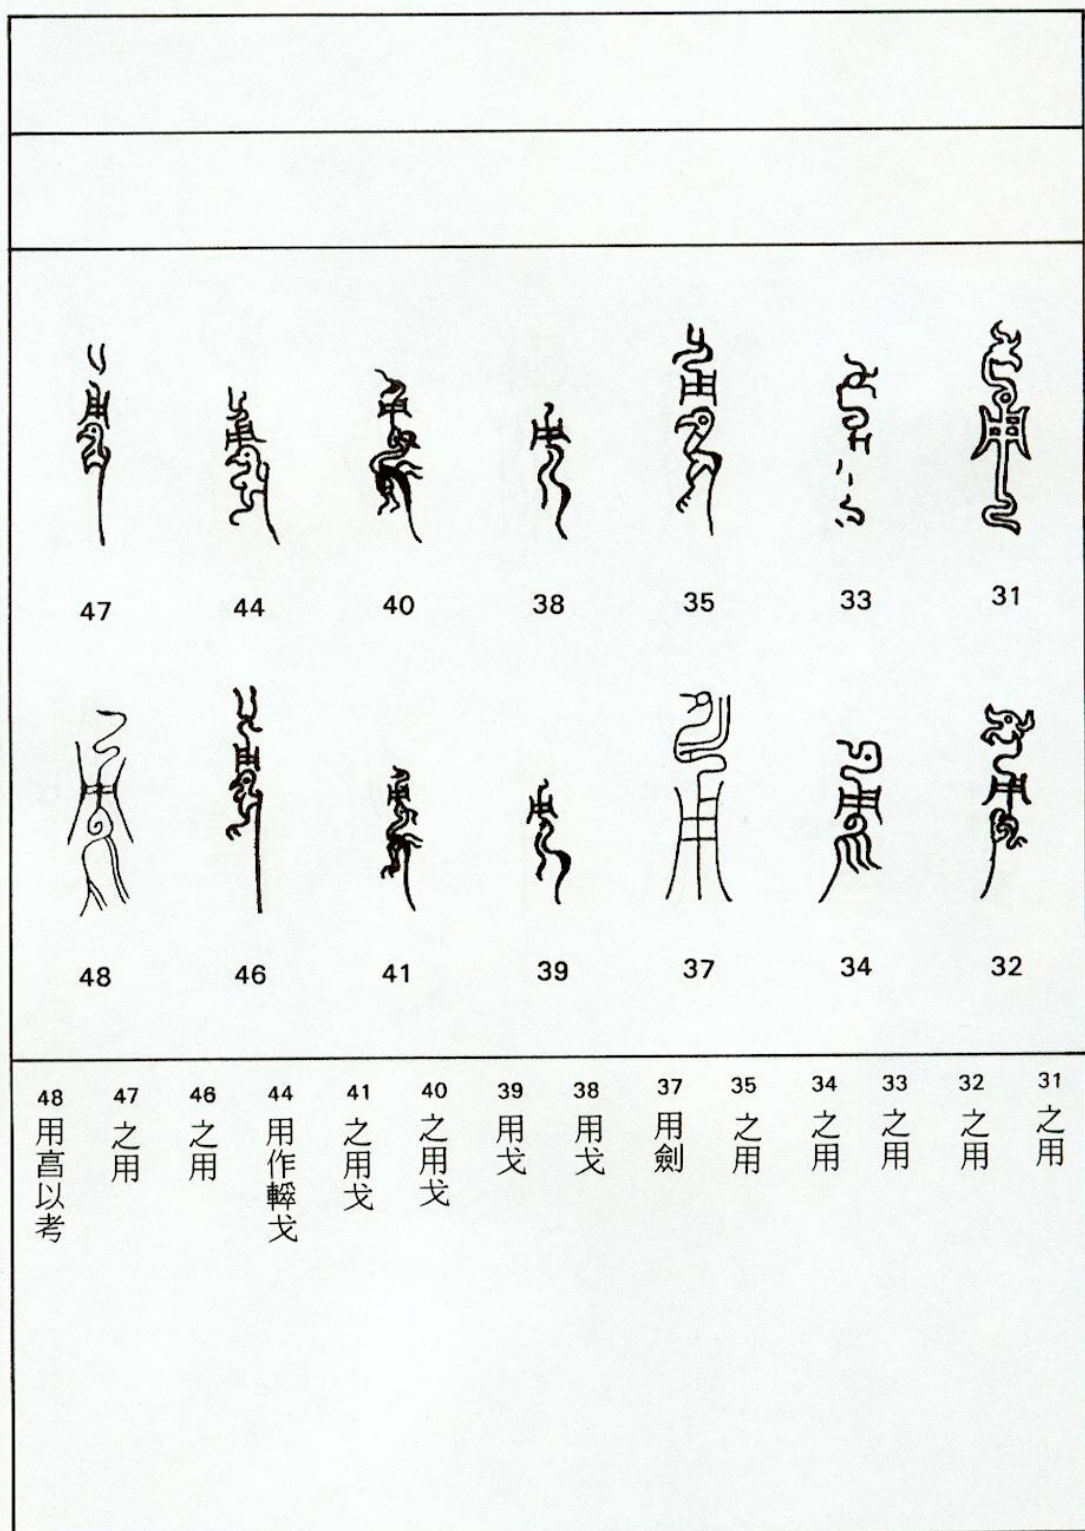 31
33
35
38
40
44
47
32
34
37
39
41
46
48
31 之用
32 之用
33 之用
34 之用
35 之用
37 用劍
38 用戈
39 用戈
40 之用戈
41 之用戈
44 用作戈
46 之用
47 之用
48 用亯以考